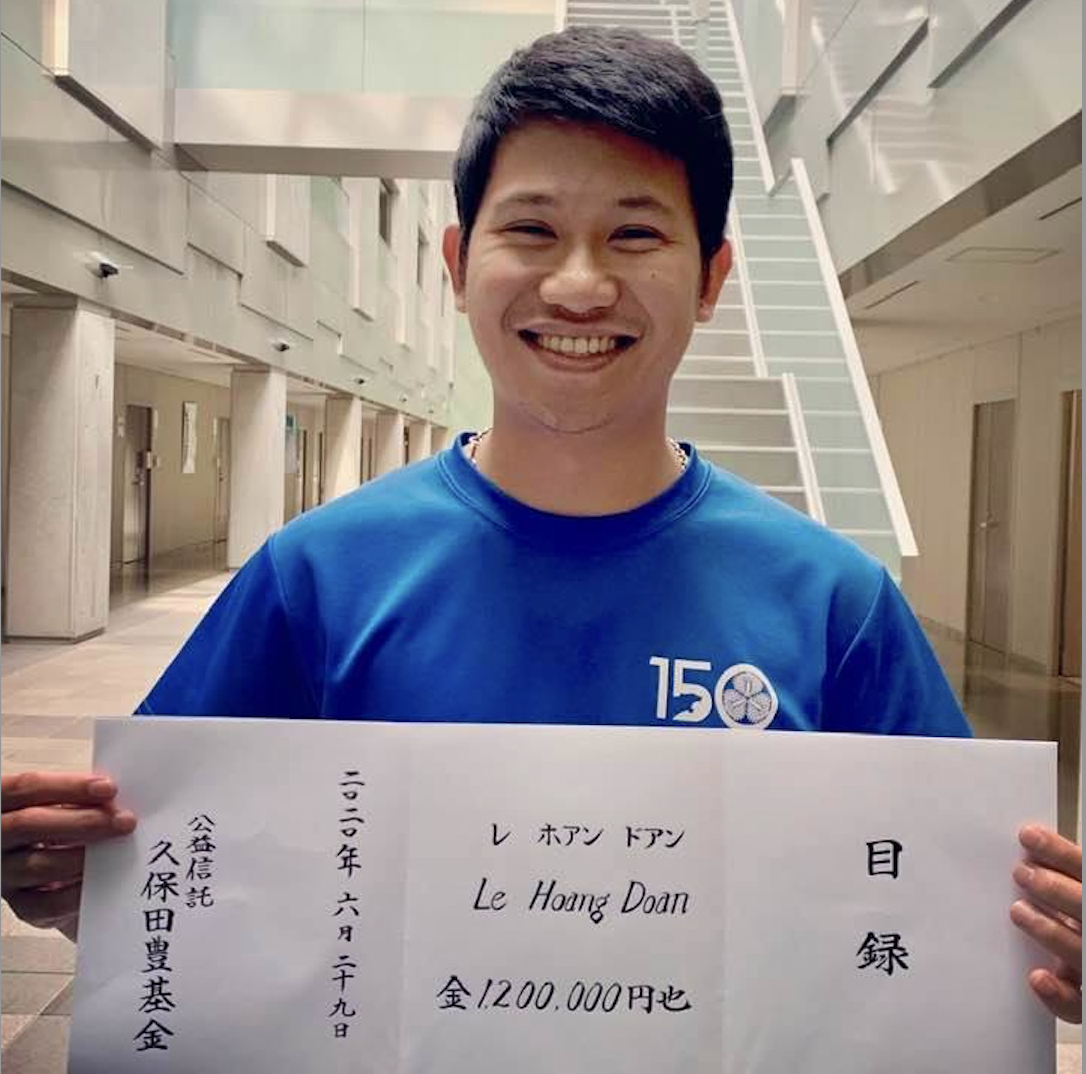 目録
レ ホアン ドアン
Le Hoang Doan
金1,200,000円也
二〇二〇年 六月 二十九日
公益信託
久保田豊基金
150